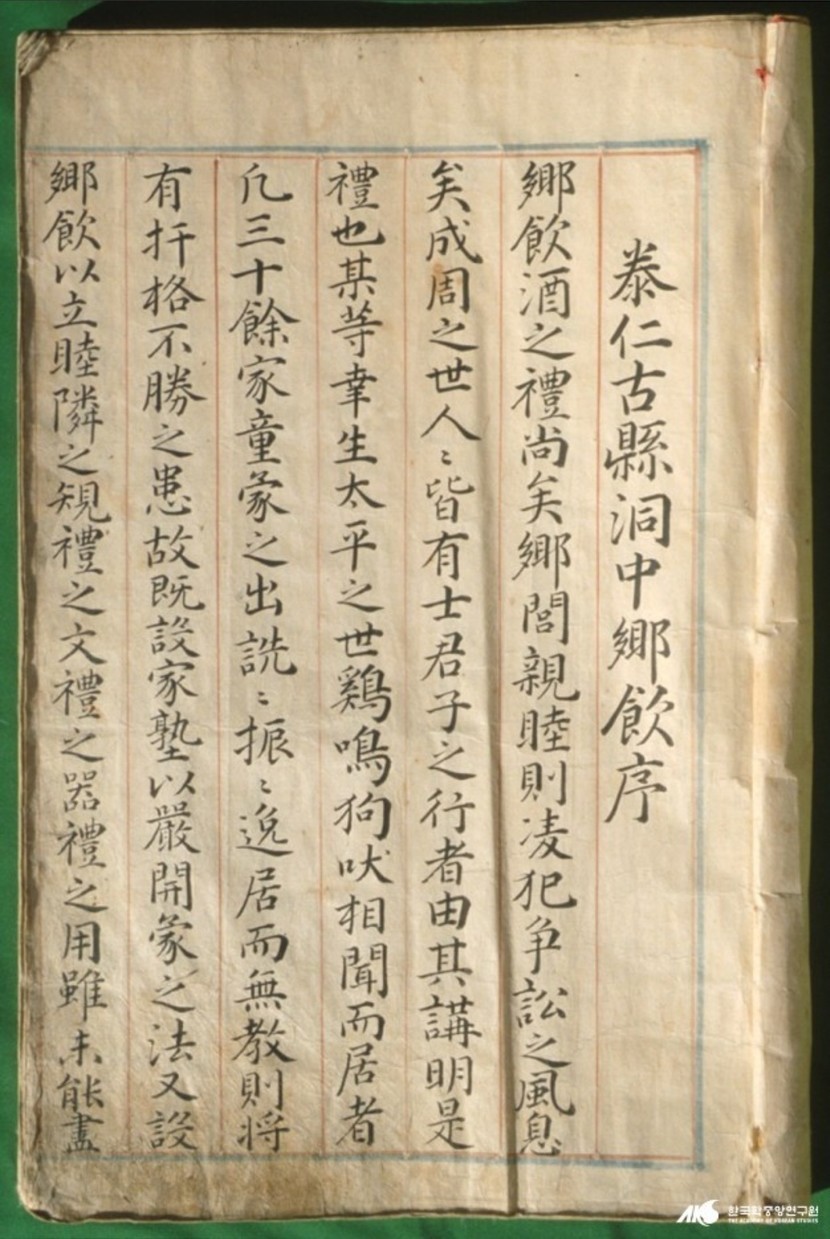 泰仁古縣洞中鄉飲序
鄉飲酒之禮尚矣鄉閭親睦則凌犯争訟之風息
矣成周之世人〻皆有士君子之行者由其講明是
禮也某等幸生太平之世鷄鳴狗吠相聞而居者
凡三十餘家童蒙之出詵〻振〻逸居而無教則將
有扞格不勝之患故既設家塾以嚴開蒙之法又設
鄉飲以立睦隣之規禮之文禮之器禮之用雖未能盡
AKS 한국학중앙연구원
THE ACADEMY OF KOREAN STUDIES